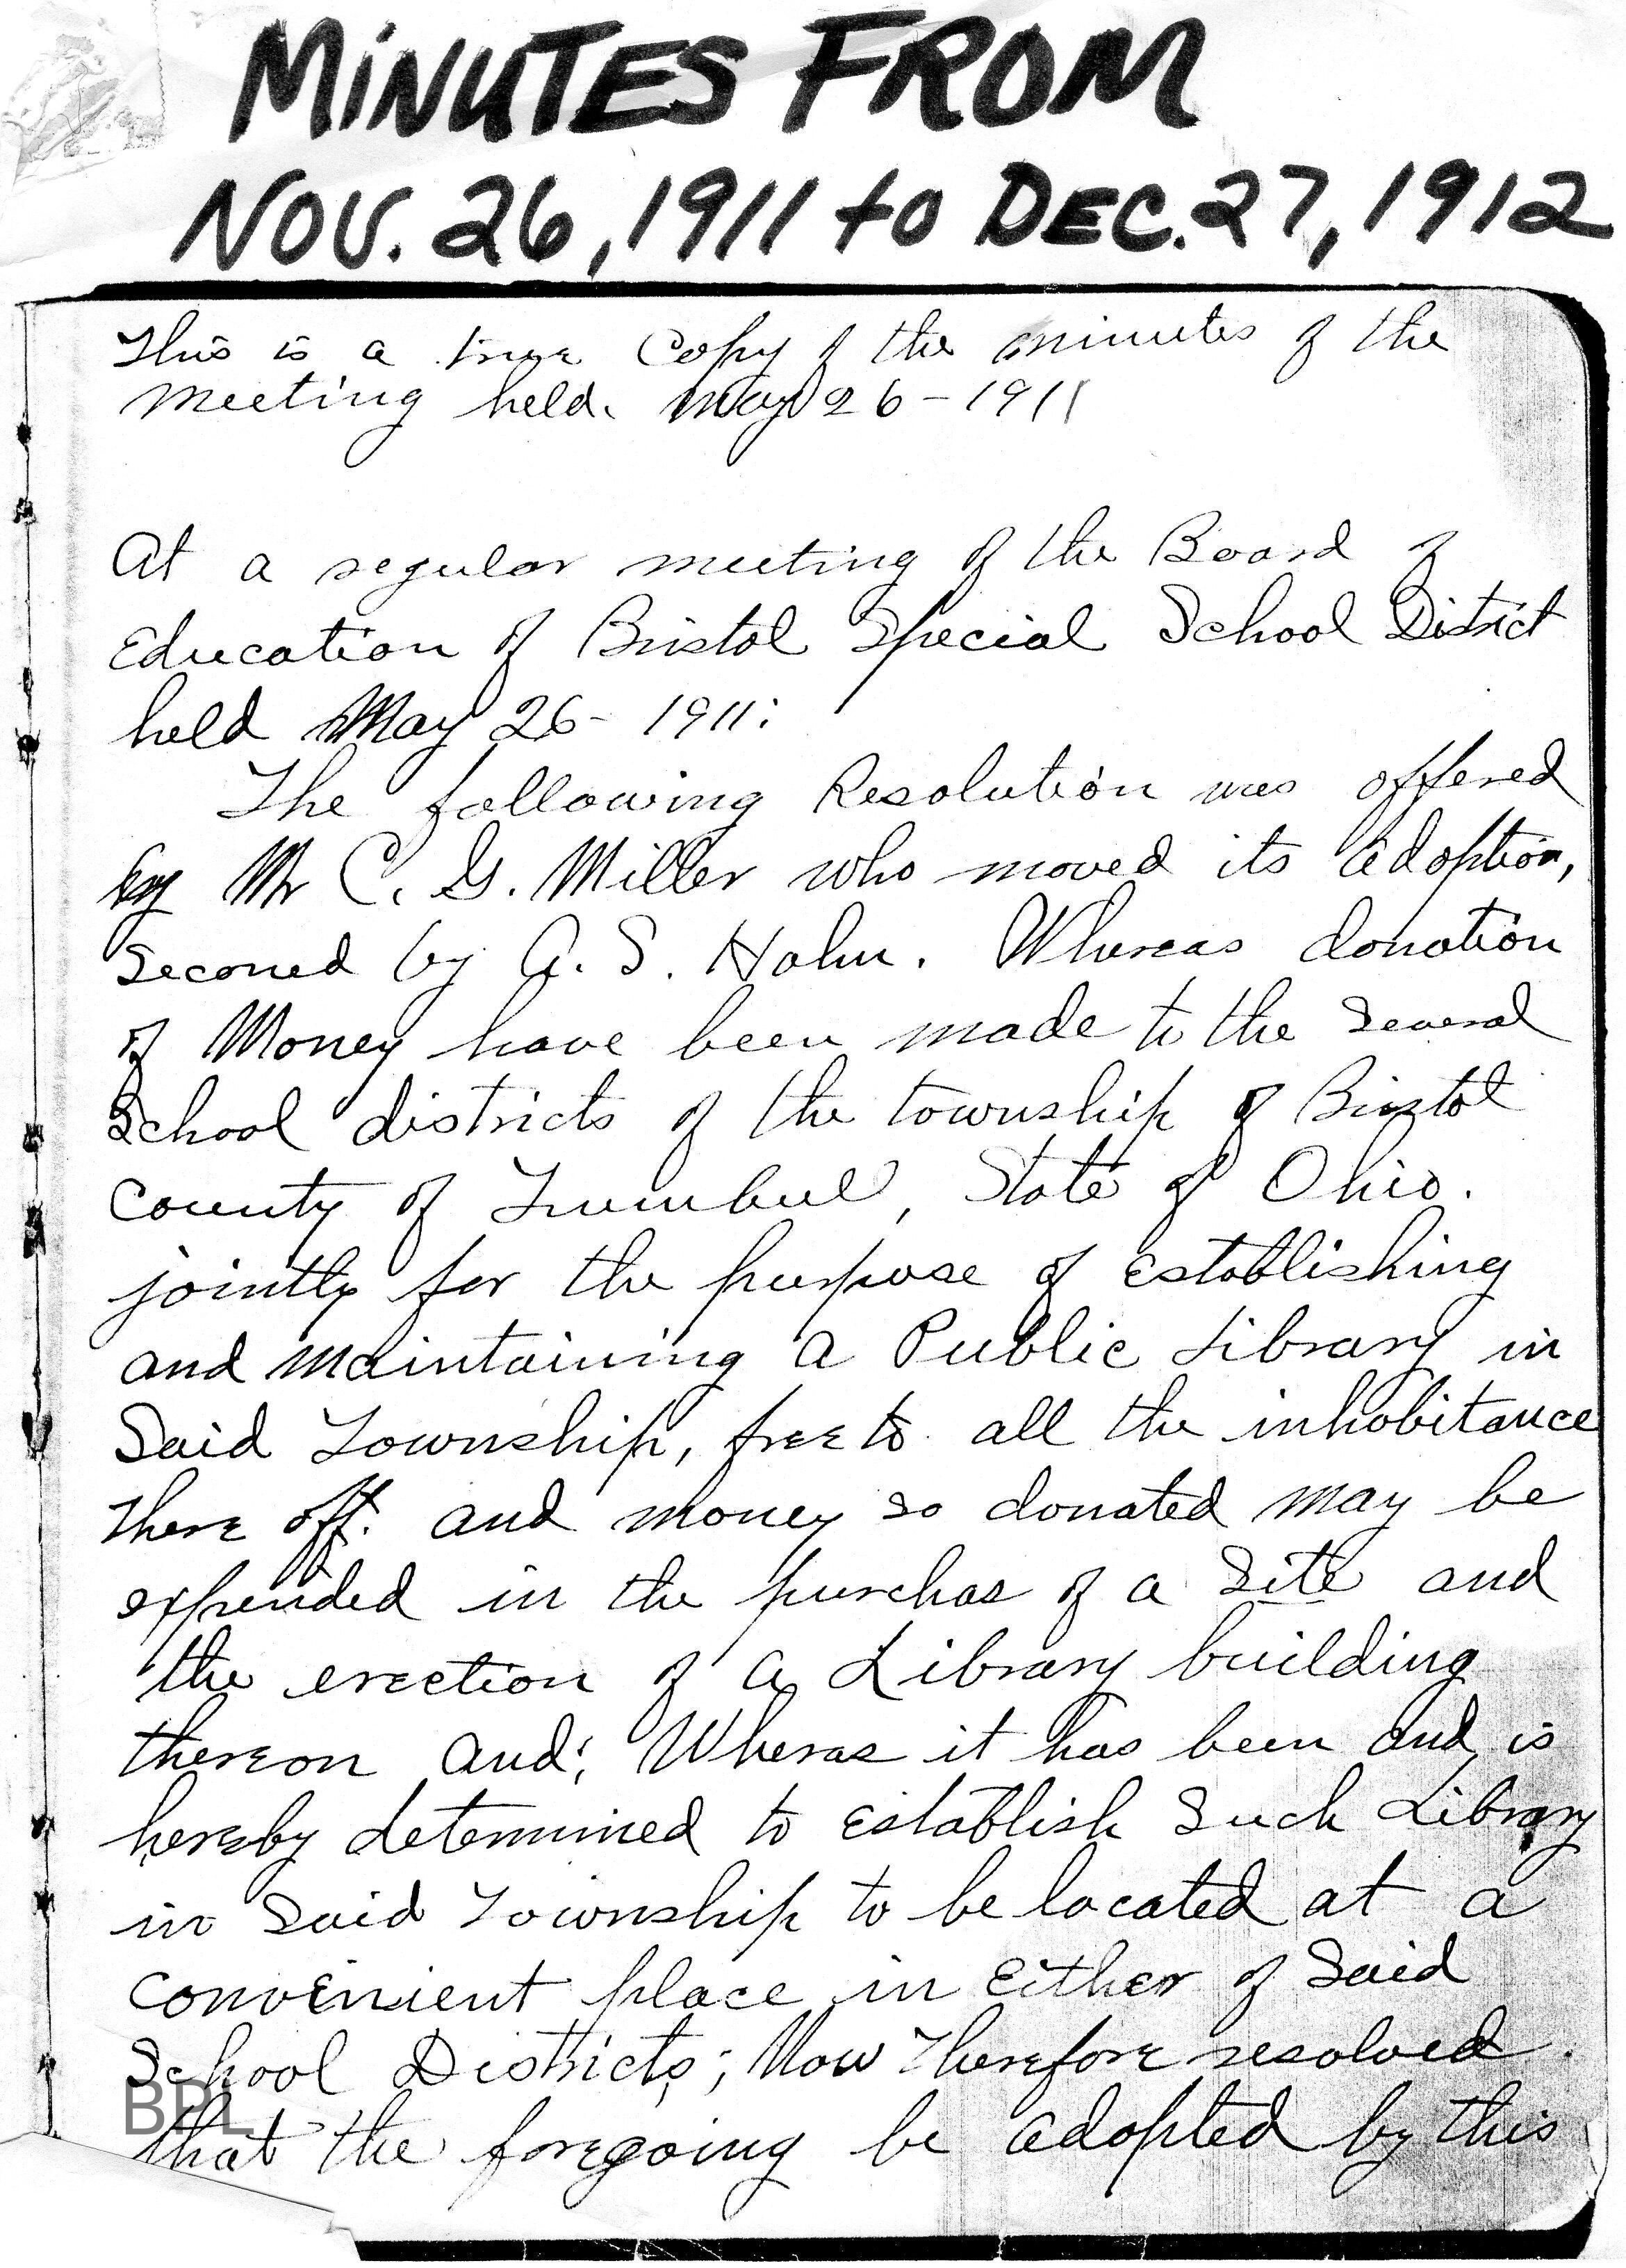 MINUTES FROM
NOV. 26, 1911 to DEC. 27, 1912
This is a true Copy of the minutes of the
meeting held. May 26 - 1911
At a regular meeting of the Board of
Education of Bristol Special School District
held May 26 - 1911:
The following Resolution was offered
by Mr C. G. Miller who moved its adoption,
Seconed by A. S. Hahn. Whereas donation
of Money have been made to the Several
School districts of the township of Bristol
County of Trumbull, State of Ohio.
jointly for the purpose of Establishing
and maintaining a Public Library in
Said Township, free to all the inhabitance
there off. and money so donated may be
expended in the purchas of a Site and
the erection of a Library building
thereon and; Wheras it has been and is
hereby determined to Establish Such Library
in Said Township to be located at a
convenient place in Either of Said
School Districts; Now Therefore resolved.
that the foregoing be adopted by this
BPL